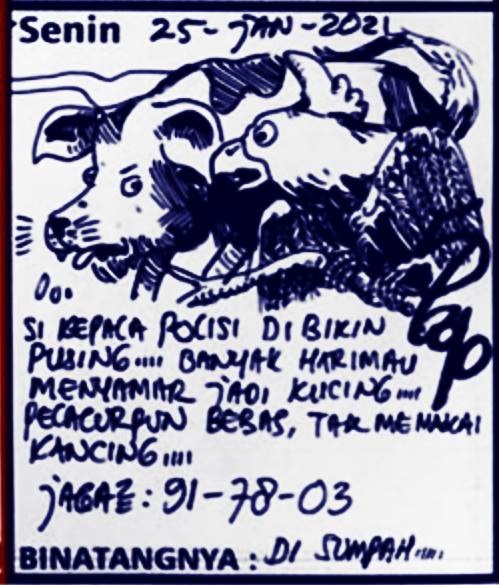 Senin 25-JAN-2021
SI KEPALA POLISI DI BIKIN
PUSING.... BANYAK HARIMAU
MENYAMAR JADI KUCING....
PELACURPUN BEBAS, TAK MEMAKAI
KANCING....
JAGAE: 91-78-03
BINATANGNYA : DI SUMPAH....